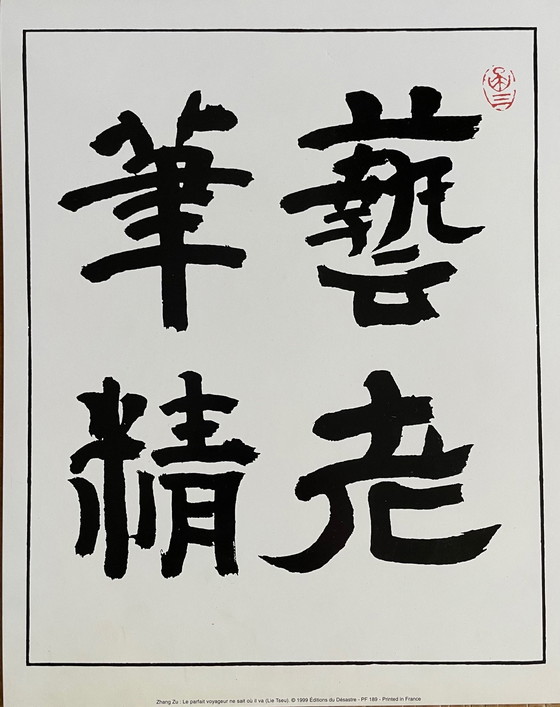 藝老
筆精
Zhang Zu : Le parfait voyageur ne sait où il va (Lie Tseu). © 1999 Éditions du Désastre - PF 189 - Printed in France